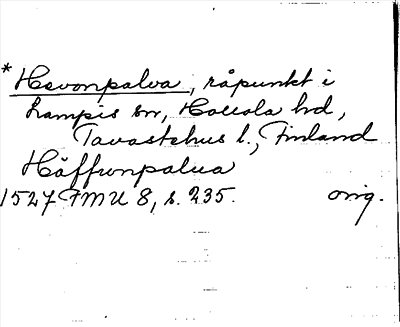 * Hevonpalva, råpunkt i
Lampis sn, Hollola hd,
Tavastehus l., Finland
Häffvonpalua
1527 FMU 8, s. 235. orig.